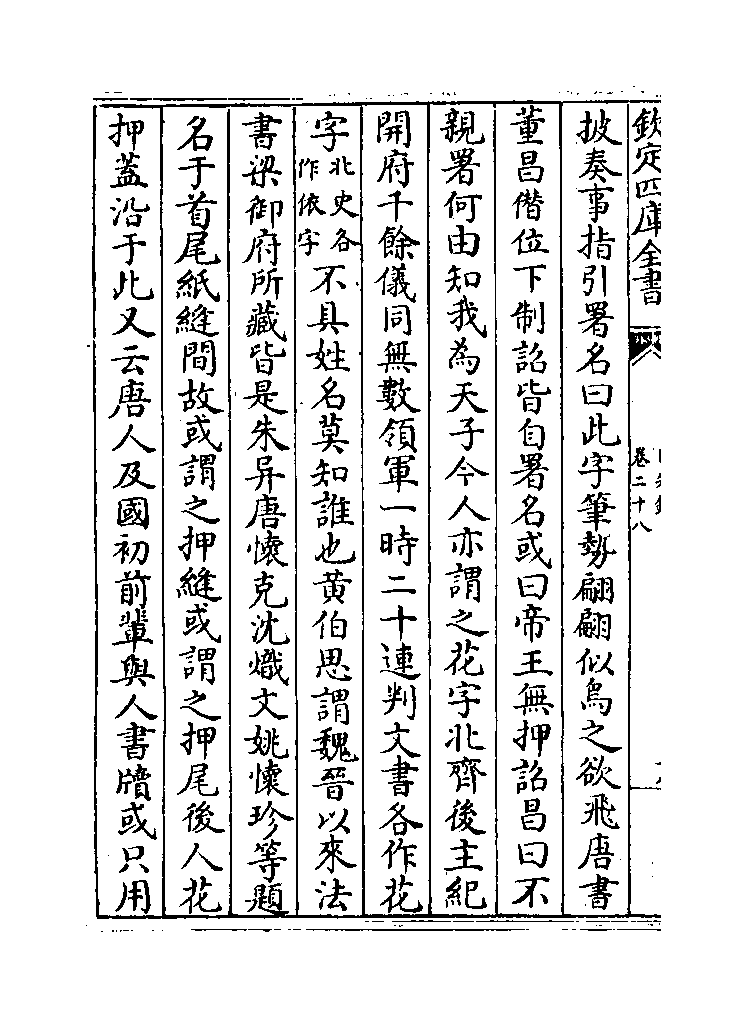 欽定四庫全書
卷二十八
披奏事指引署名曰此字筆勢翩翩似鳥之欲飛唐書
董昌僭位下制詔皆自署名或曰帝王無押詔昌曰不
親署何由知我為天子今人亦謂之花字北齊後主紀
開府千餘儀同無數領軍一時二十連判文書各作花
字北史各作依字不具姓名莫知誰也黄伯思謂魏晉以來法
書梁御府所藏皆是朱异唐懷充沈熾文姚懷珍等題
名于首尾紙縫間故或謂之押縫或謂之押尾後人花
押蓋沿于此又云唐人及國初前輩與人書牘或只用